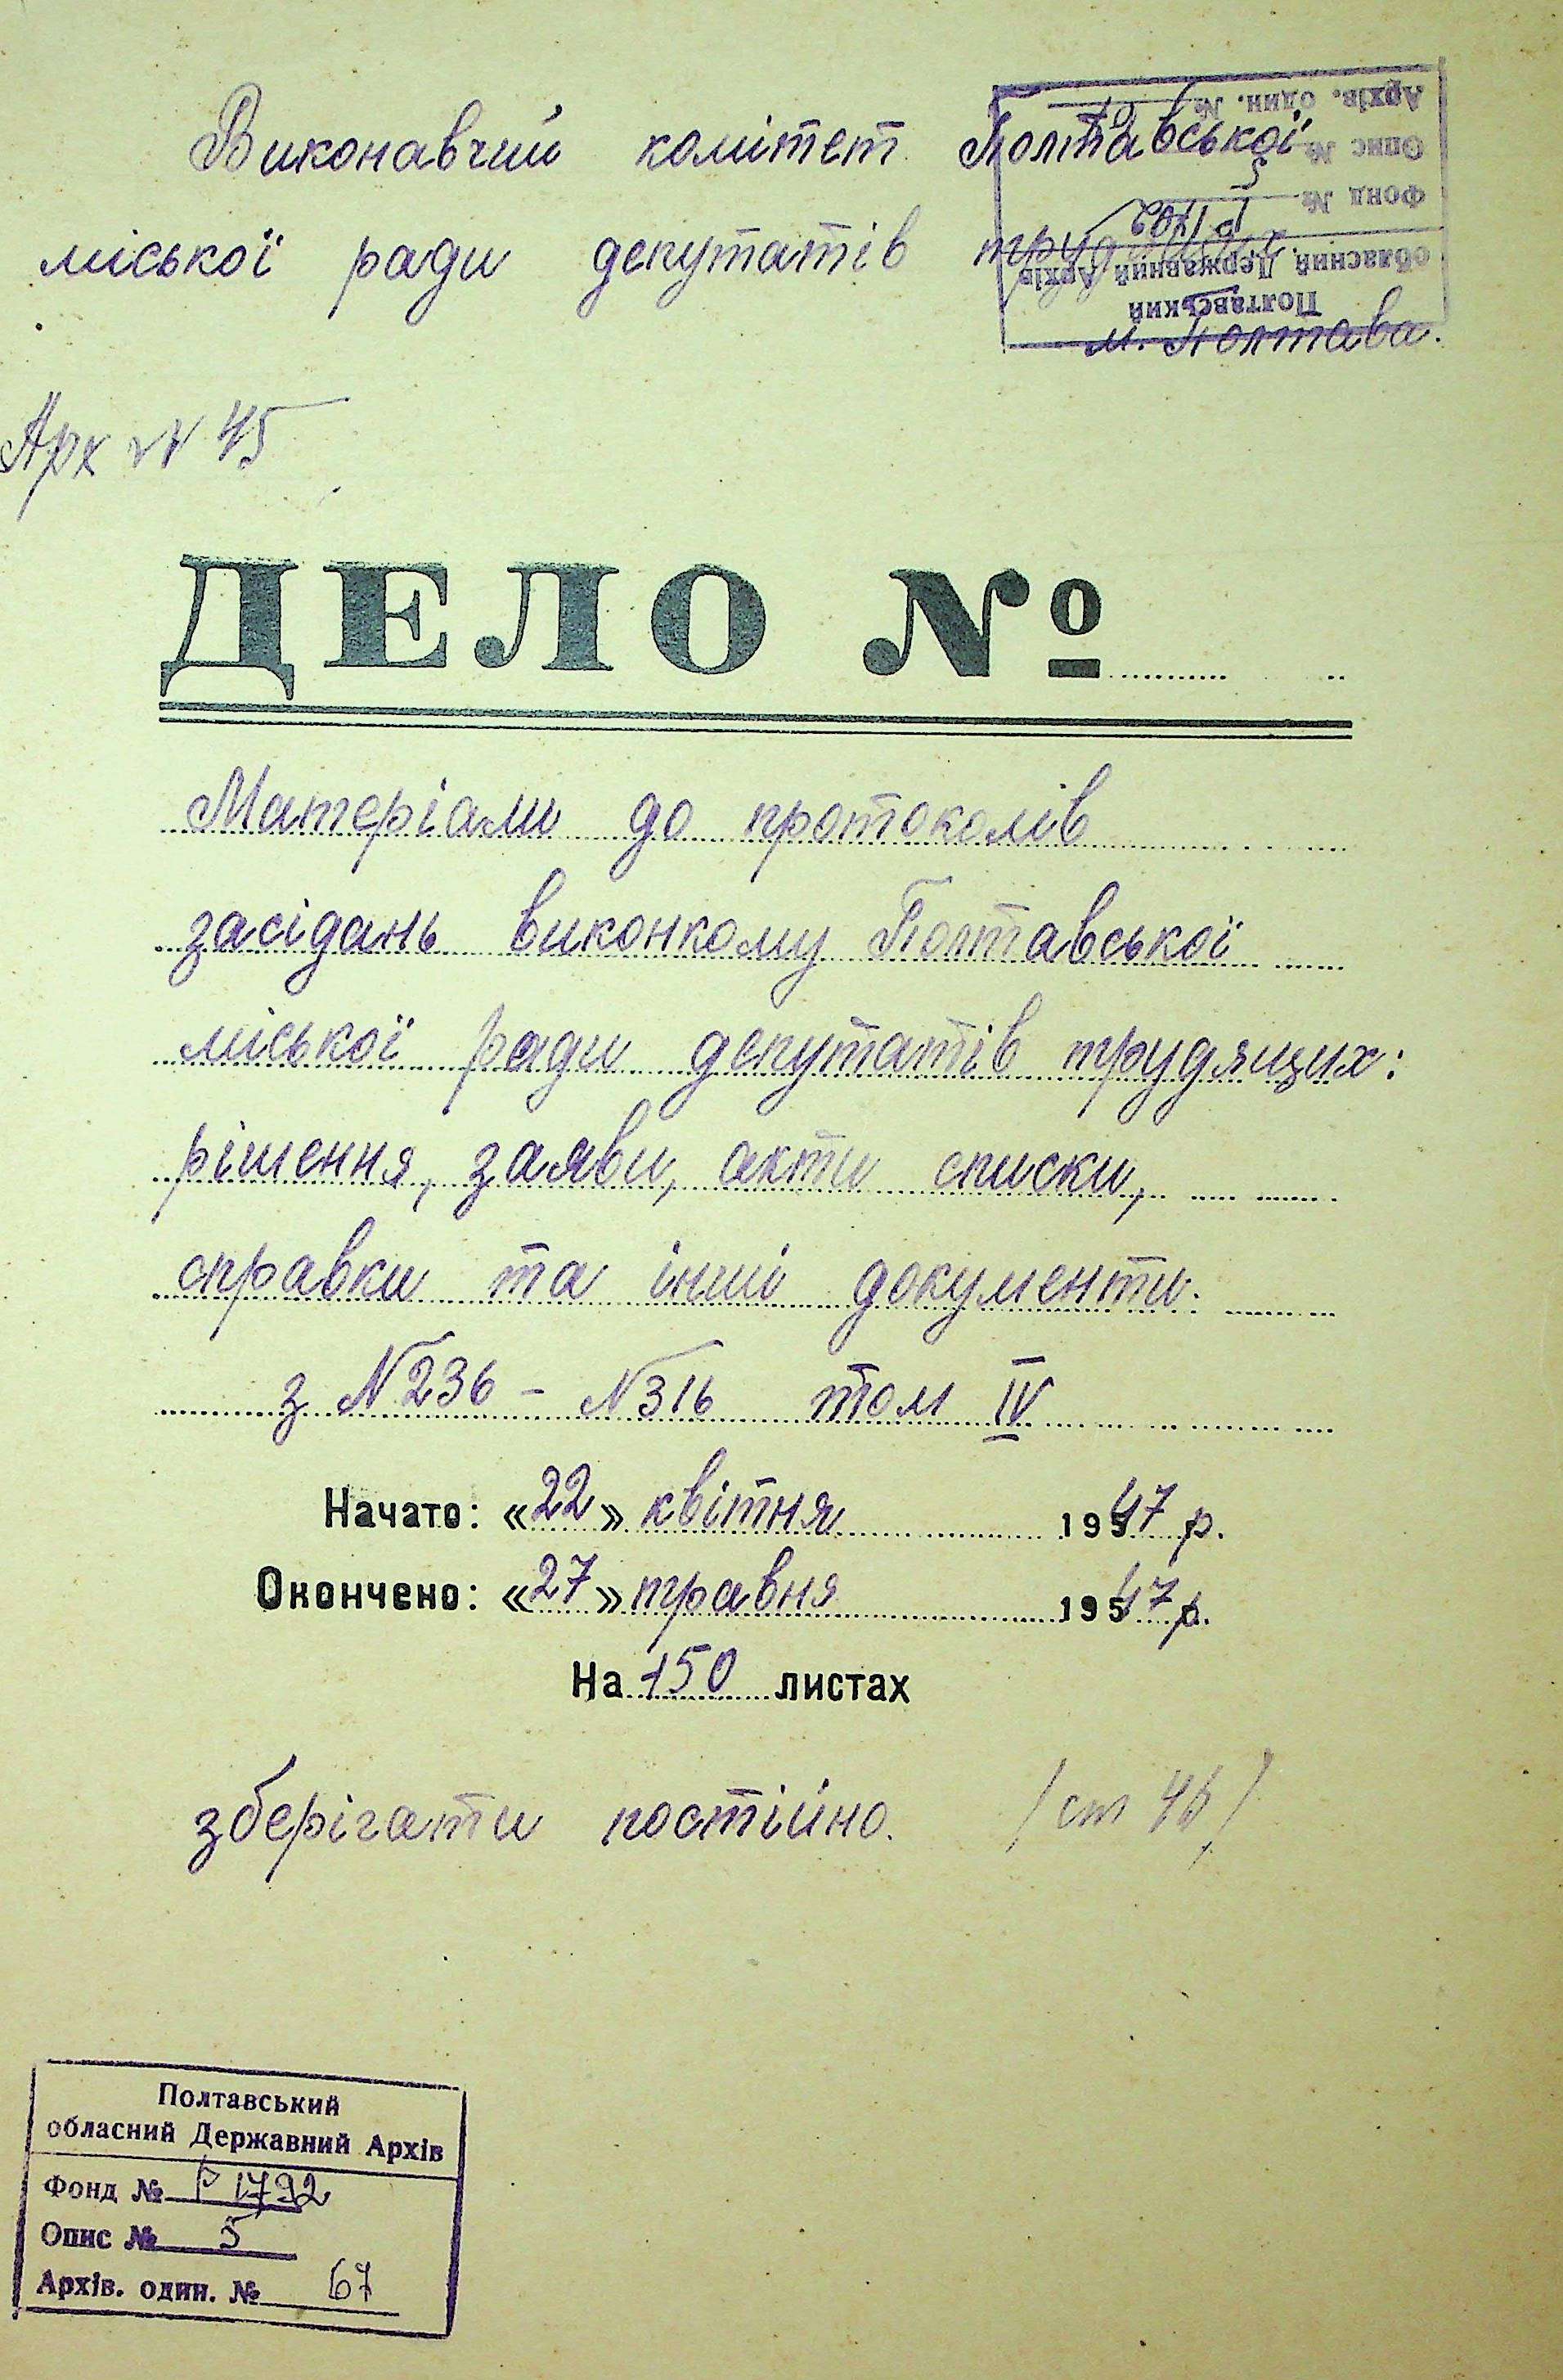 Виконавчий комітет Полтавської
міської ради депутатів трудящих
м. Полтава.
Полтавський
обласний Державний Архів
Фонд №
Опис № 5
Архів. один. №
Арх № 45
ДЕЛО №
Матеріали до протоколів
засідань виконкому Полтавської
міської ради депутатів трудящих:
рішення, заяви, акти списки,
справки та інші документи.
з №236 - №316 том IV
Начато: «22» квітня 1947 р.
Окончено: «27» травня 1947 р.
На 150 листах
зберігати постійно. /ст 45/
Полтавський
обласний Державний Архів
Фонд № Р 1792
Опис № 5
Архів. один. № 67